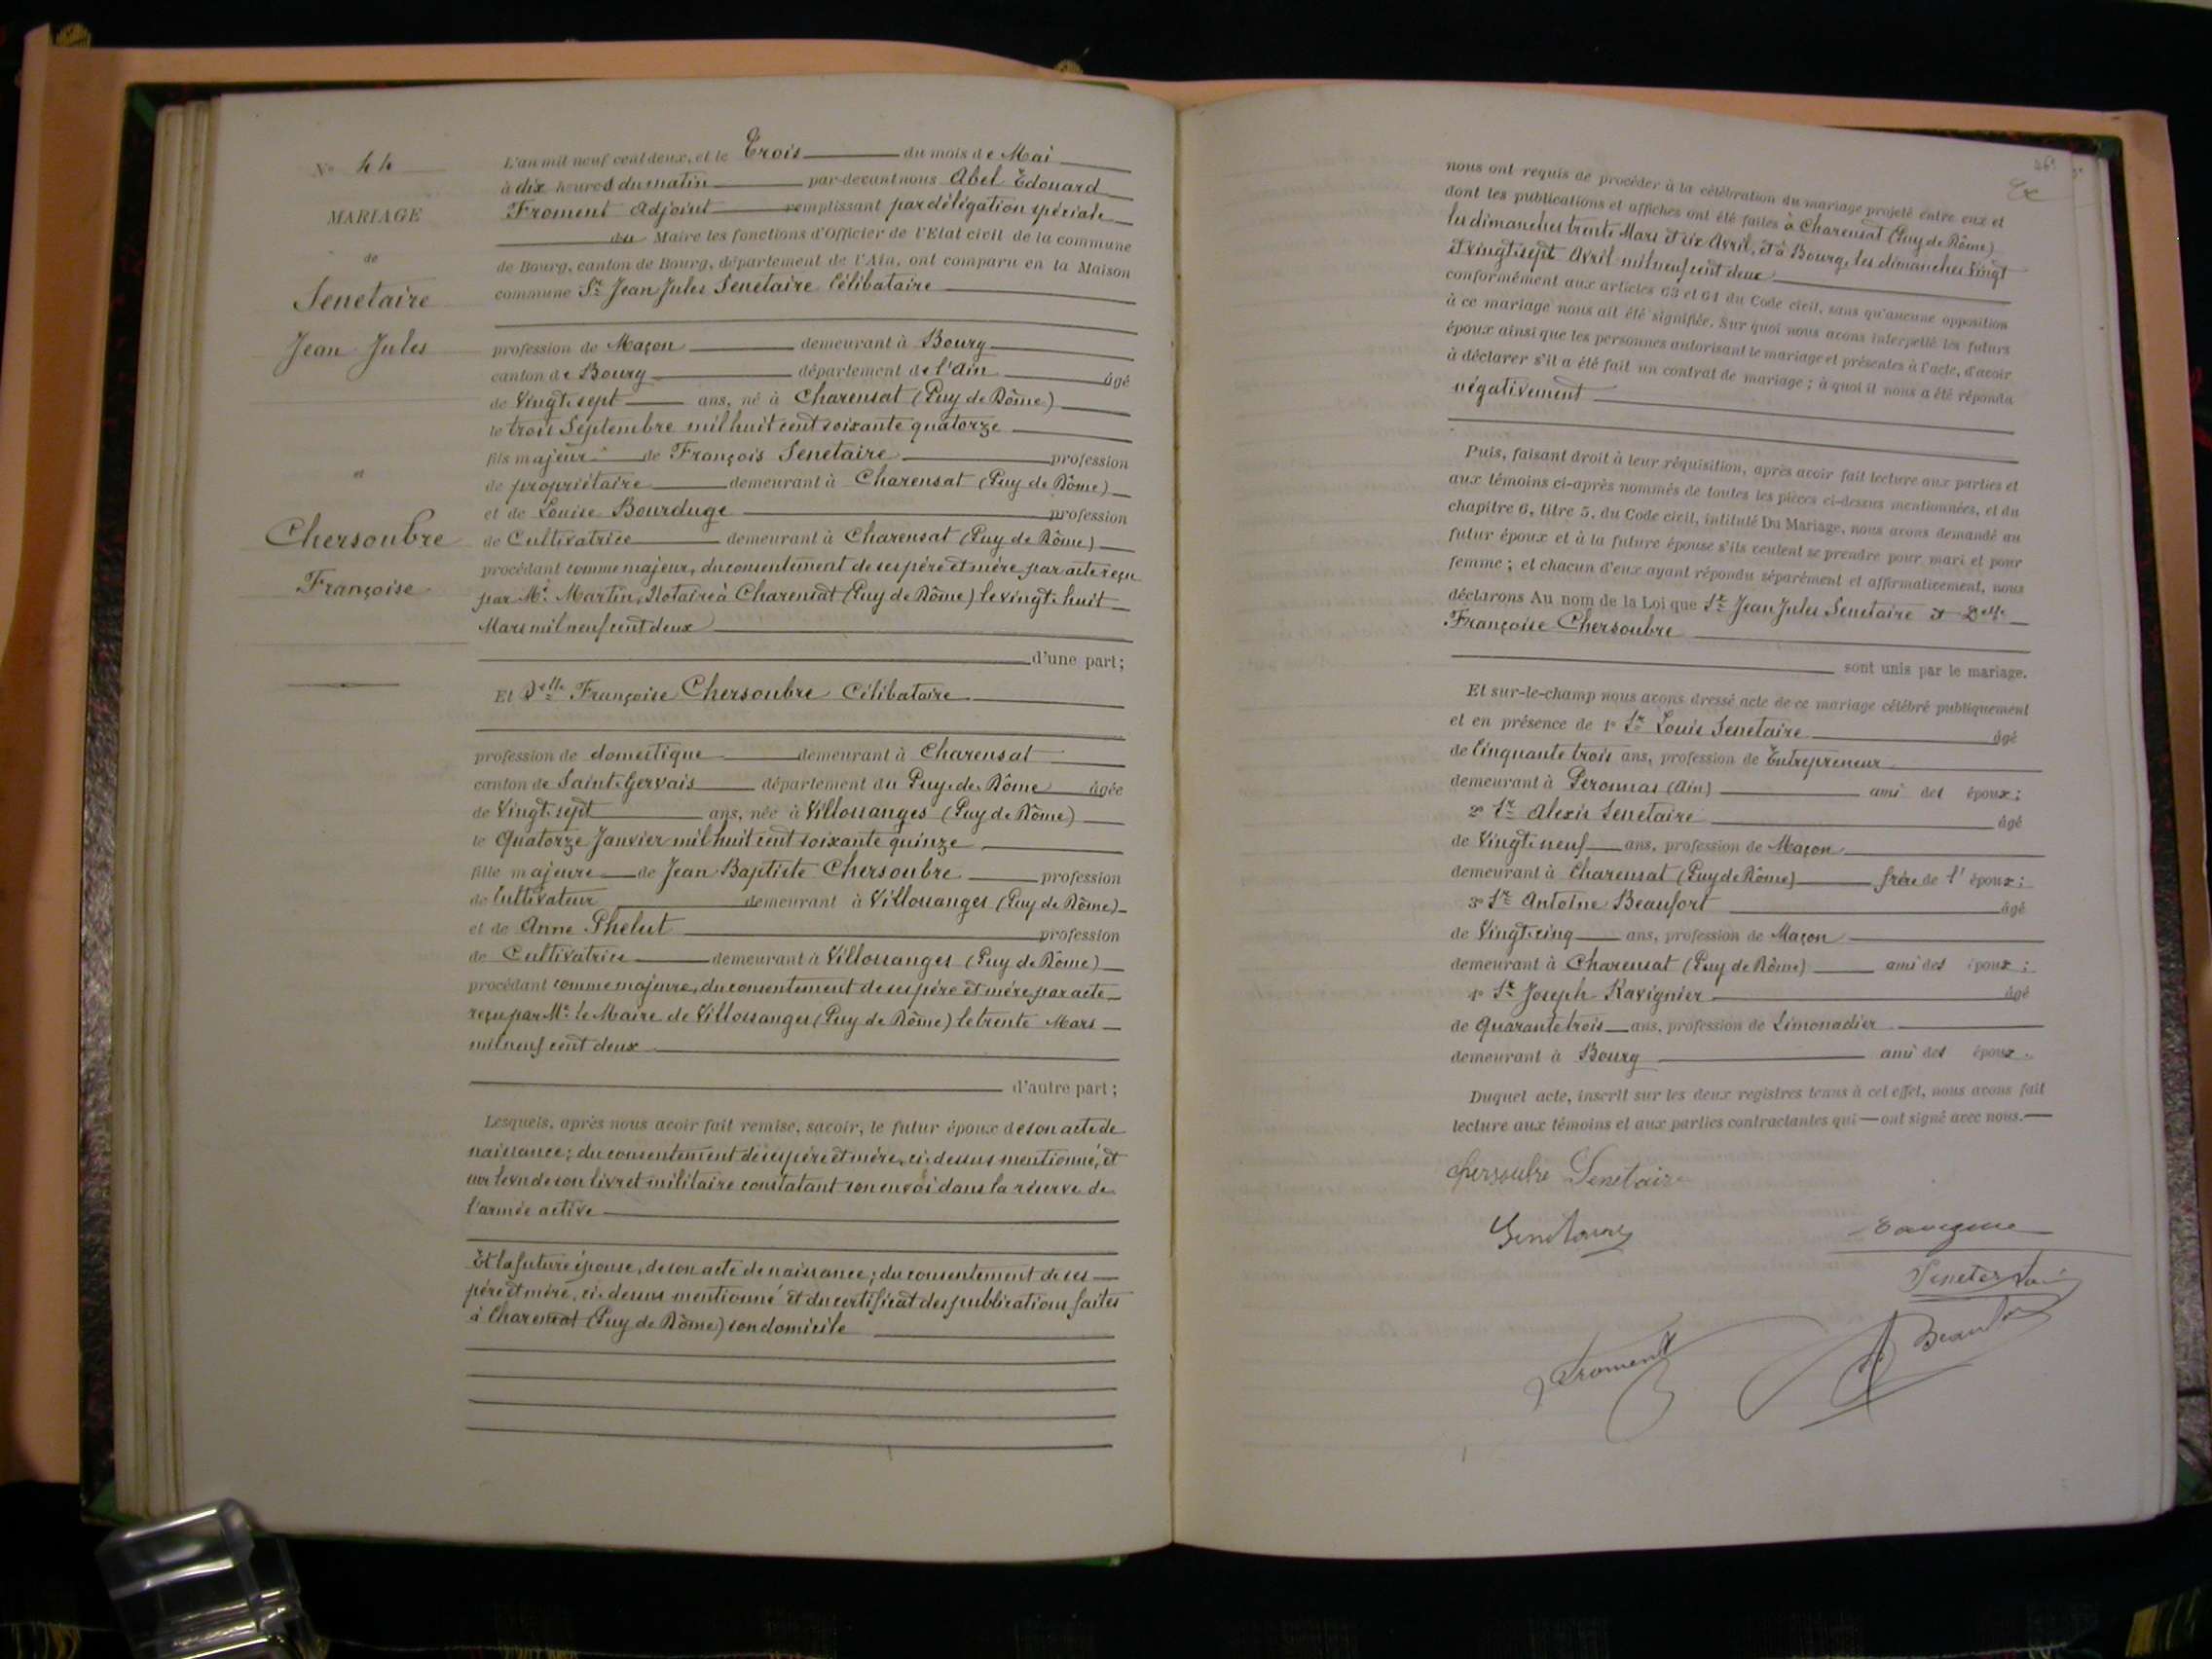 N° 44
MARIAGE
de
Senetaire
Jean Jules
et
Chersoubre
Françoise
L'an mil neuf cent deux, et le Trois du mois de Mai
à dix heures du matin par-devant nous Abel Edouard
Froment Adjoint remplissant par délégation spéciale
du Maire les fonctions d'Officier de l'Etat civil de la commune
de Bourg, canton de Bourg, département de l'Ain, ont comparu en la Maison
commune Sr Jean Jules Senetaire Célibataire
profession de Maçon demeurant à Bourg
canton de Bourg département de l'Ain âgé
de Vingt-sept ans, né à Charensat (Puy de Dôme)
le trois Septembre mil huit cent soixante quatorze
fils majeur de François Senetaire profession
de propriétaire demeurant à Charensat (Puy de Dôme)
et de Louise Bourduge profession
de Cultivatrice demeurant à Charensat (Puy de Dôme)
procédant comme majeur, du consentement de ses père et mère par acte reçu
par Me Martin, Notaire à Charensat (Puy de Dôme) le vingt-huit
Mars mil neuf cent deux
d'une part;
Et Delle Françoise Chersoubre Célibataire
profession de domestique demeurant à Charensat
canton de Saint-Gervais département du Puy-de-Dôme âgée
de Vingt-sept ans, née à Villossanges (Puy de Dôme)
le Quatorze Janvier mil huit cent soixante quinze
fille majeure de Jean Baptiste Chersoubre profession
de Cultivateur demeurant à Villossanges (Puy de Dôme)
et de Anne Phelut profession
de Cultivatrice demeurant à Villossanges (Puy de Dôme)
procédant comme majeure, du consentement de ses père et mère par acte
reçu par Mr le Maire de Villossanges (Puy de Dôme) le trente Mars
mil neuf cent deux
d'autre part;
Lesquels, après nous avoir fait remise, savoir, le futur époux de son acte de
naissance; du consentement de ses père et mère, ci-dessus mentionné, et
sur le vu de son livret militaire constatant son envoi dans la réserve de
l'armée active
Et la future épouse, de son acte de naissance; du consentement de ses
père et mère, ci-dessus mentionné et du certificat des publications faites
à Charensat (Puy de Dôme) son domicile
nous ont requis de procéder à la célébration du mariage projeté entre eux et
dont les publications et affiches ont été faites à Charensat (Puy de Dôme)
les dimanches trente Mars et six Avril, et à Bourg, les dimanches Vingt
et vingt-sept Avril mil neuf cent deux
conformément aux articles 63 et 64 du Code civil, sans qu'aucune opposition
à ce mariage nous ait été signifiée. Sur quoi nous avons interpellé les futurs
époux ainsi que les personnes autorisant le mariage et présentes à l'acte, d'avoir
à déclarer s'il a été fait un contrat de mariage; à quoi il nous a été répondu
négativement
Puis, faisant droit à leur réquisition, après avoir fait lecture aux parties et
aux témoins ci-après nommés de toutes les pièces ci-dessus mentionnées, et du
chapitre 6, titre 5, du Code civil, intitulé Du Mariage, nous avons demandé au
futur époux et à la future épouse s'ils veulent se prendre pour mari et pour
femme; et chacun d'eux ayant répondu séparément et affirmativement, nous
déclarons Au nom de la Loi que Sr Jean Jules Senetaire et Delle
Françoise Chersoubre
sont unis par le mariage.
Et sur-le-champ nous avons dressé acte de ce mariage célébré publiquement
et en présence de 1° Sr Louis Senetaire âgé
de Cinquante trois ans, profession de Entrepreneur
demeurant à Peronnas (Ain) ami des époux;
2° Sr Alexis Senetaire âgé
de Vingt-neuf ans, profession de Maçon
demeurant à Charensat (Puy de Dôme) frère de l'époux;
3° Sr Antoine Beaufort âgé
de Vingt-cinq ans, profession de Maçon
demeurant à Charensat (Puy de Dôme) ami des époux;
4° Sr Joseph Ravignier âgé
de Quarante trois ans, profession de Limonadier
demeurant à Bourg ami des époux.
Duquel acte, inscrit sur les deux registres tenus à cet effet, nous avons fait
lecture aux témoins et aux parties contractantes qui ont signé avec nous.
Chersoubre Senetaire
Froment